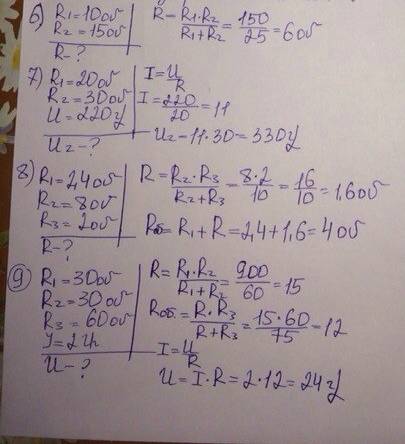 6) R₁=10 об
R₂=15 об
R-?
R=R₁·R₂/R₁+R₂=150/25=6 об
7) R₁=20 об
R₂=30 об
U=220 У
U₂-?
I=U/R
I=220/20=11
U₂-11·30=330 У
8) R₁=2,4 об
R₂=8 об
R₃=2 об
R-?
R=R₂·R₃/R₂+R₃=8·2/10=16/10=1,6 об
Rоб=R₁+R=2,4+1,6=4 об
9) R₁=30 об
R₂=30 об
R₃=60 об
U-?
R=R₁·R₂/R₁+R₂=900/60=15
Rоб=R·R₃/R+R₃=15·60/75=12
I=U/R
U=I·R=2·12=24